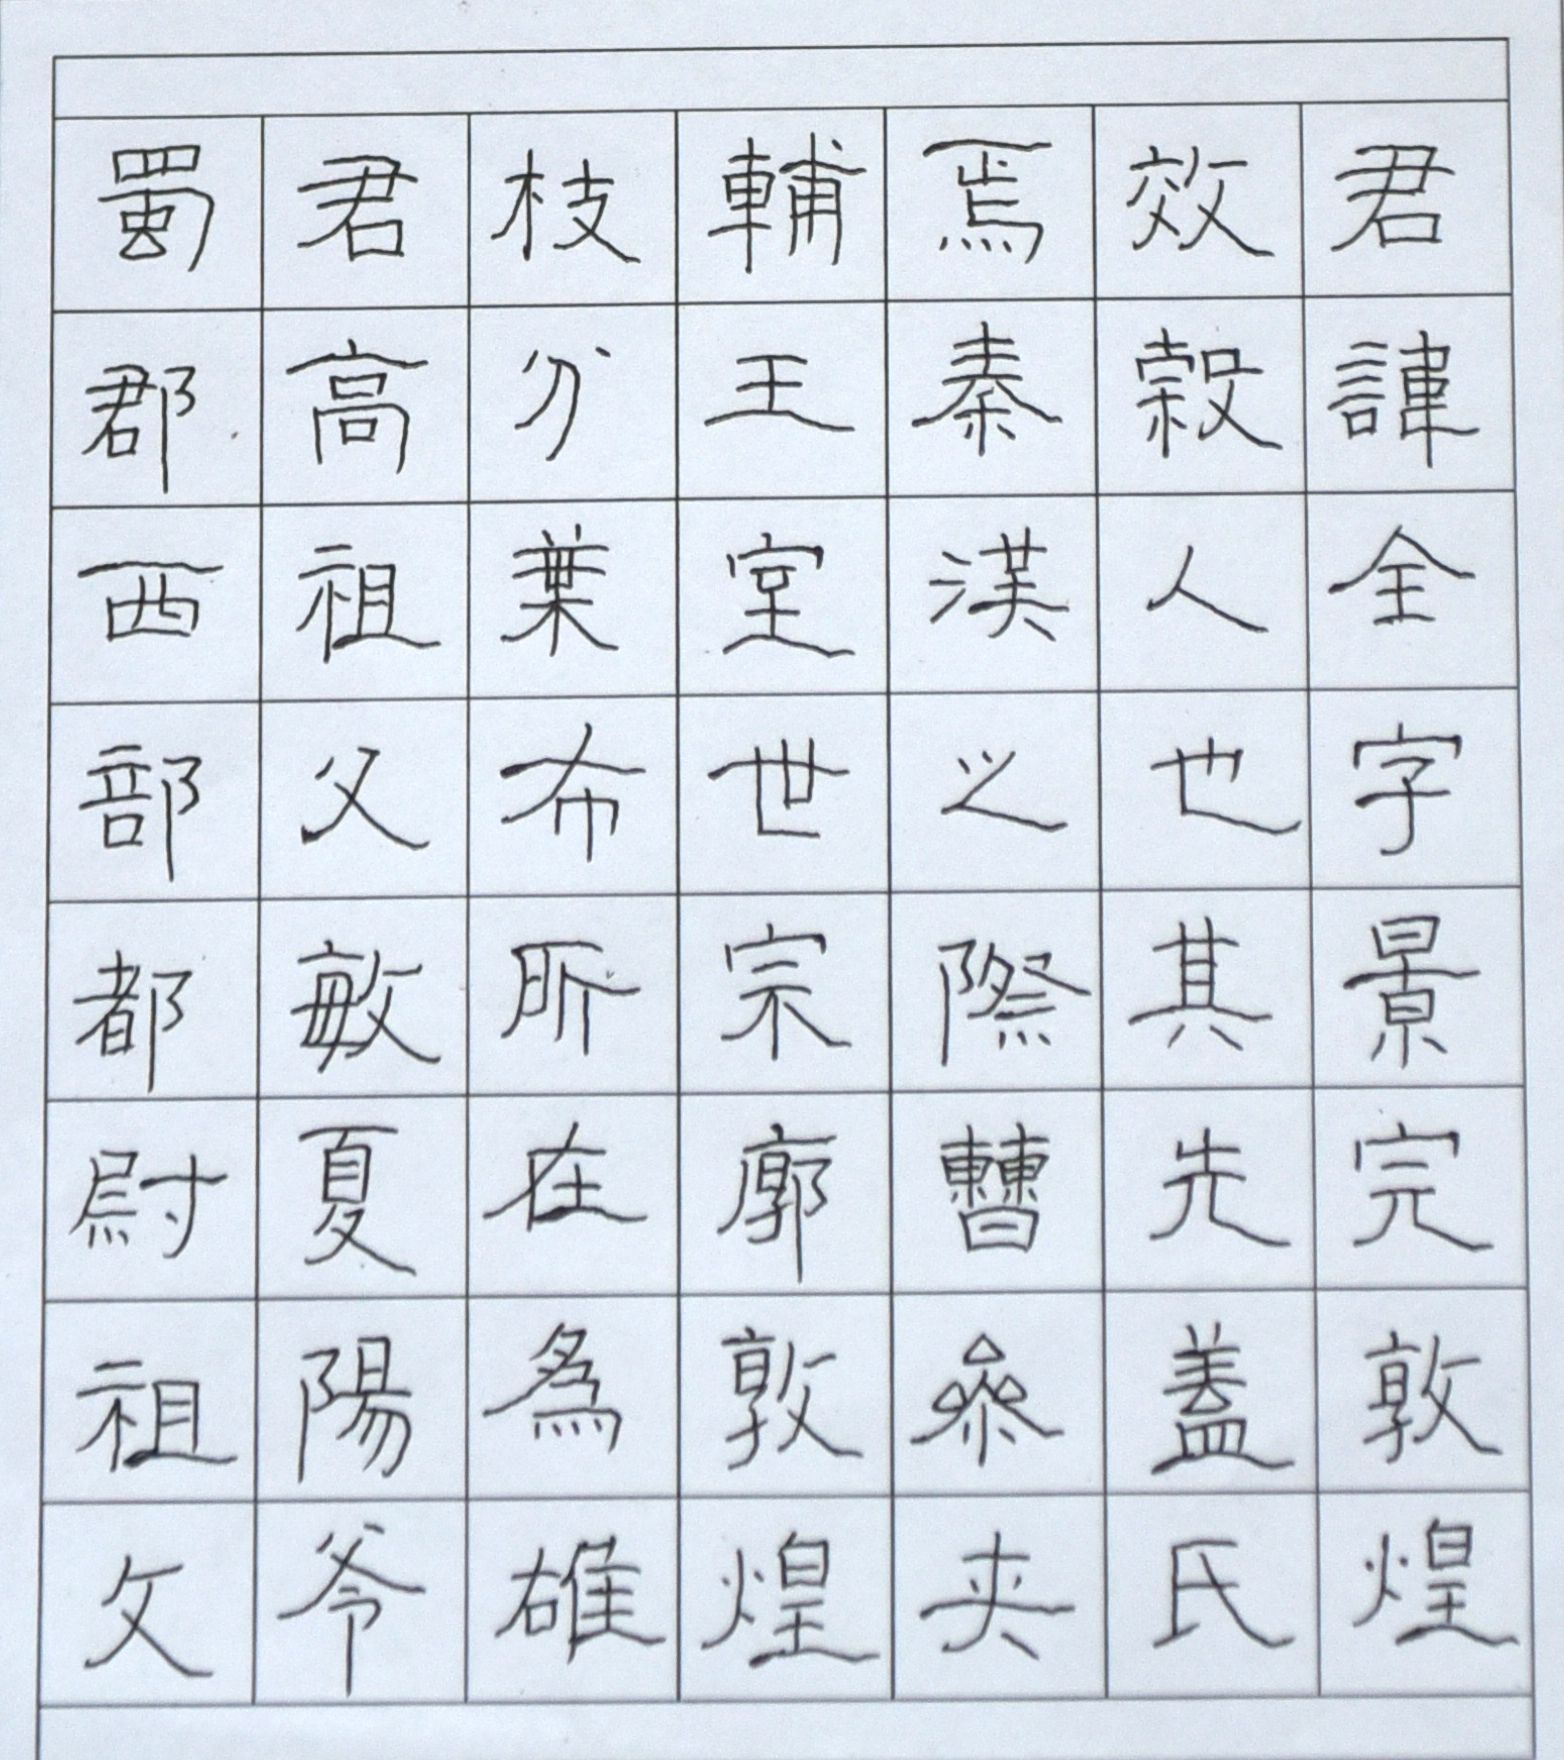 君諱全字景完敦煌
效穀人也其先蓋氏
焉秦漢之際曹參夾
輔王室世宗廓敦煌
枝分葉布所在為雄
君高祖父敏夏陽爷
蜀郡西部都尉祖父